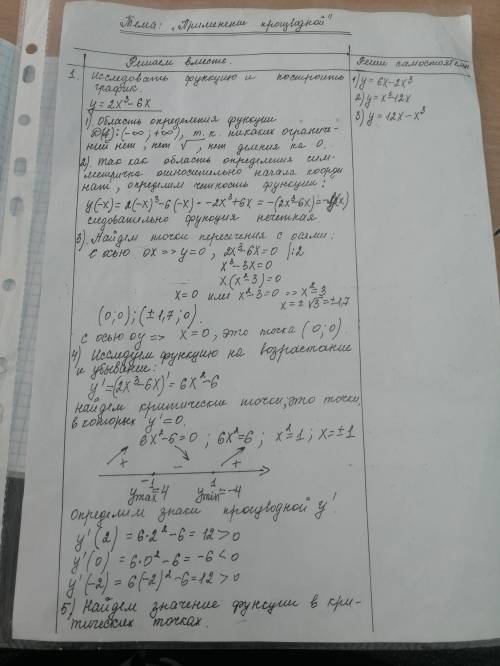 Тема: „Применение процводной"
Решаем вместе.
Реши самостоятельно
1. Исследовать функцию и построить
график.
y = 2x³-6x
1). Область определения функции
D(y): (-∞; +∞), т.к. никаких ограниче-
ний нет, нет √, нет деления на 0.
2). Так как область определения сим-
метрично относительно начала коорди
нат, определим четность функции:
y(-x) = 2(-x)³-6(-x) = -2x³+6x = -(2x³-6x) = -y(x)
следовательно функция нечетная
3). Найдем точки пересечения с осями:
с осью ox => y=0, 2x³-6x=0 |:2
x³-3x=0
x(x²-3)=0
x=0 или x²-3=0 => x²=3
x=±√3=±1,7
(0;0); (±1,7; 0).
с осью oy => x=0, это точка (0;0).
4) Исследуем функцию на возрастание
и убывание:
y'=(2x³-6x)'=6x²-6
найдем критические точки, это точки,
в которых y'=0.
6x²-6=0; 6x²=6; x²=1; x=±1
+ - +
-1 1
ymax=4 ymin=-4
Определим знаки процводной y'
y'(2)=6·2²-6=12>0
y'(0)=6·0²-6=-6<0
y'(-2)=6(-2)²-6=12>0
5) Найдем значение функции в кри-
тических точках.
1) y=6x-2x³
2) y=x³-12x
3) y=12x-x³